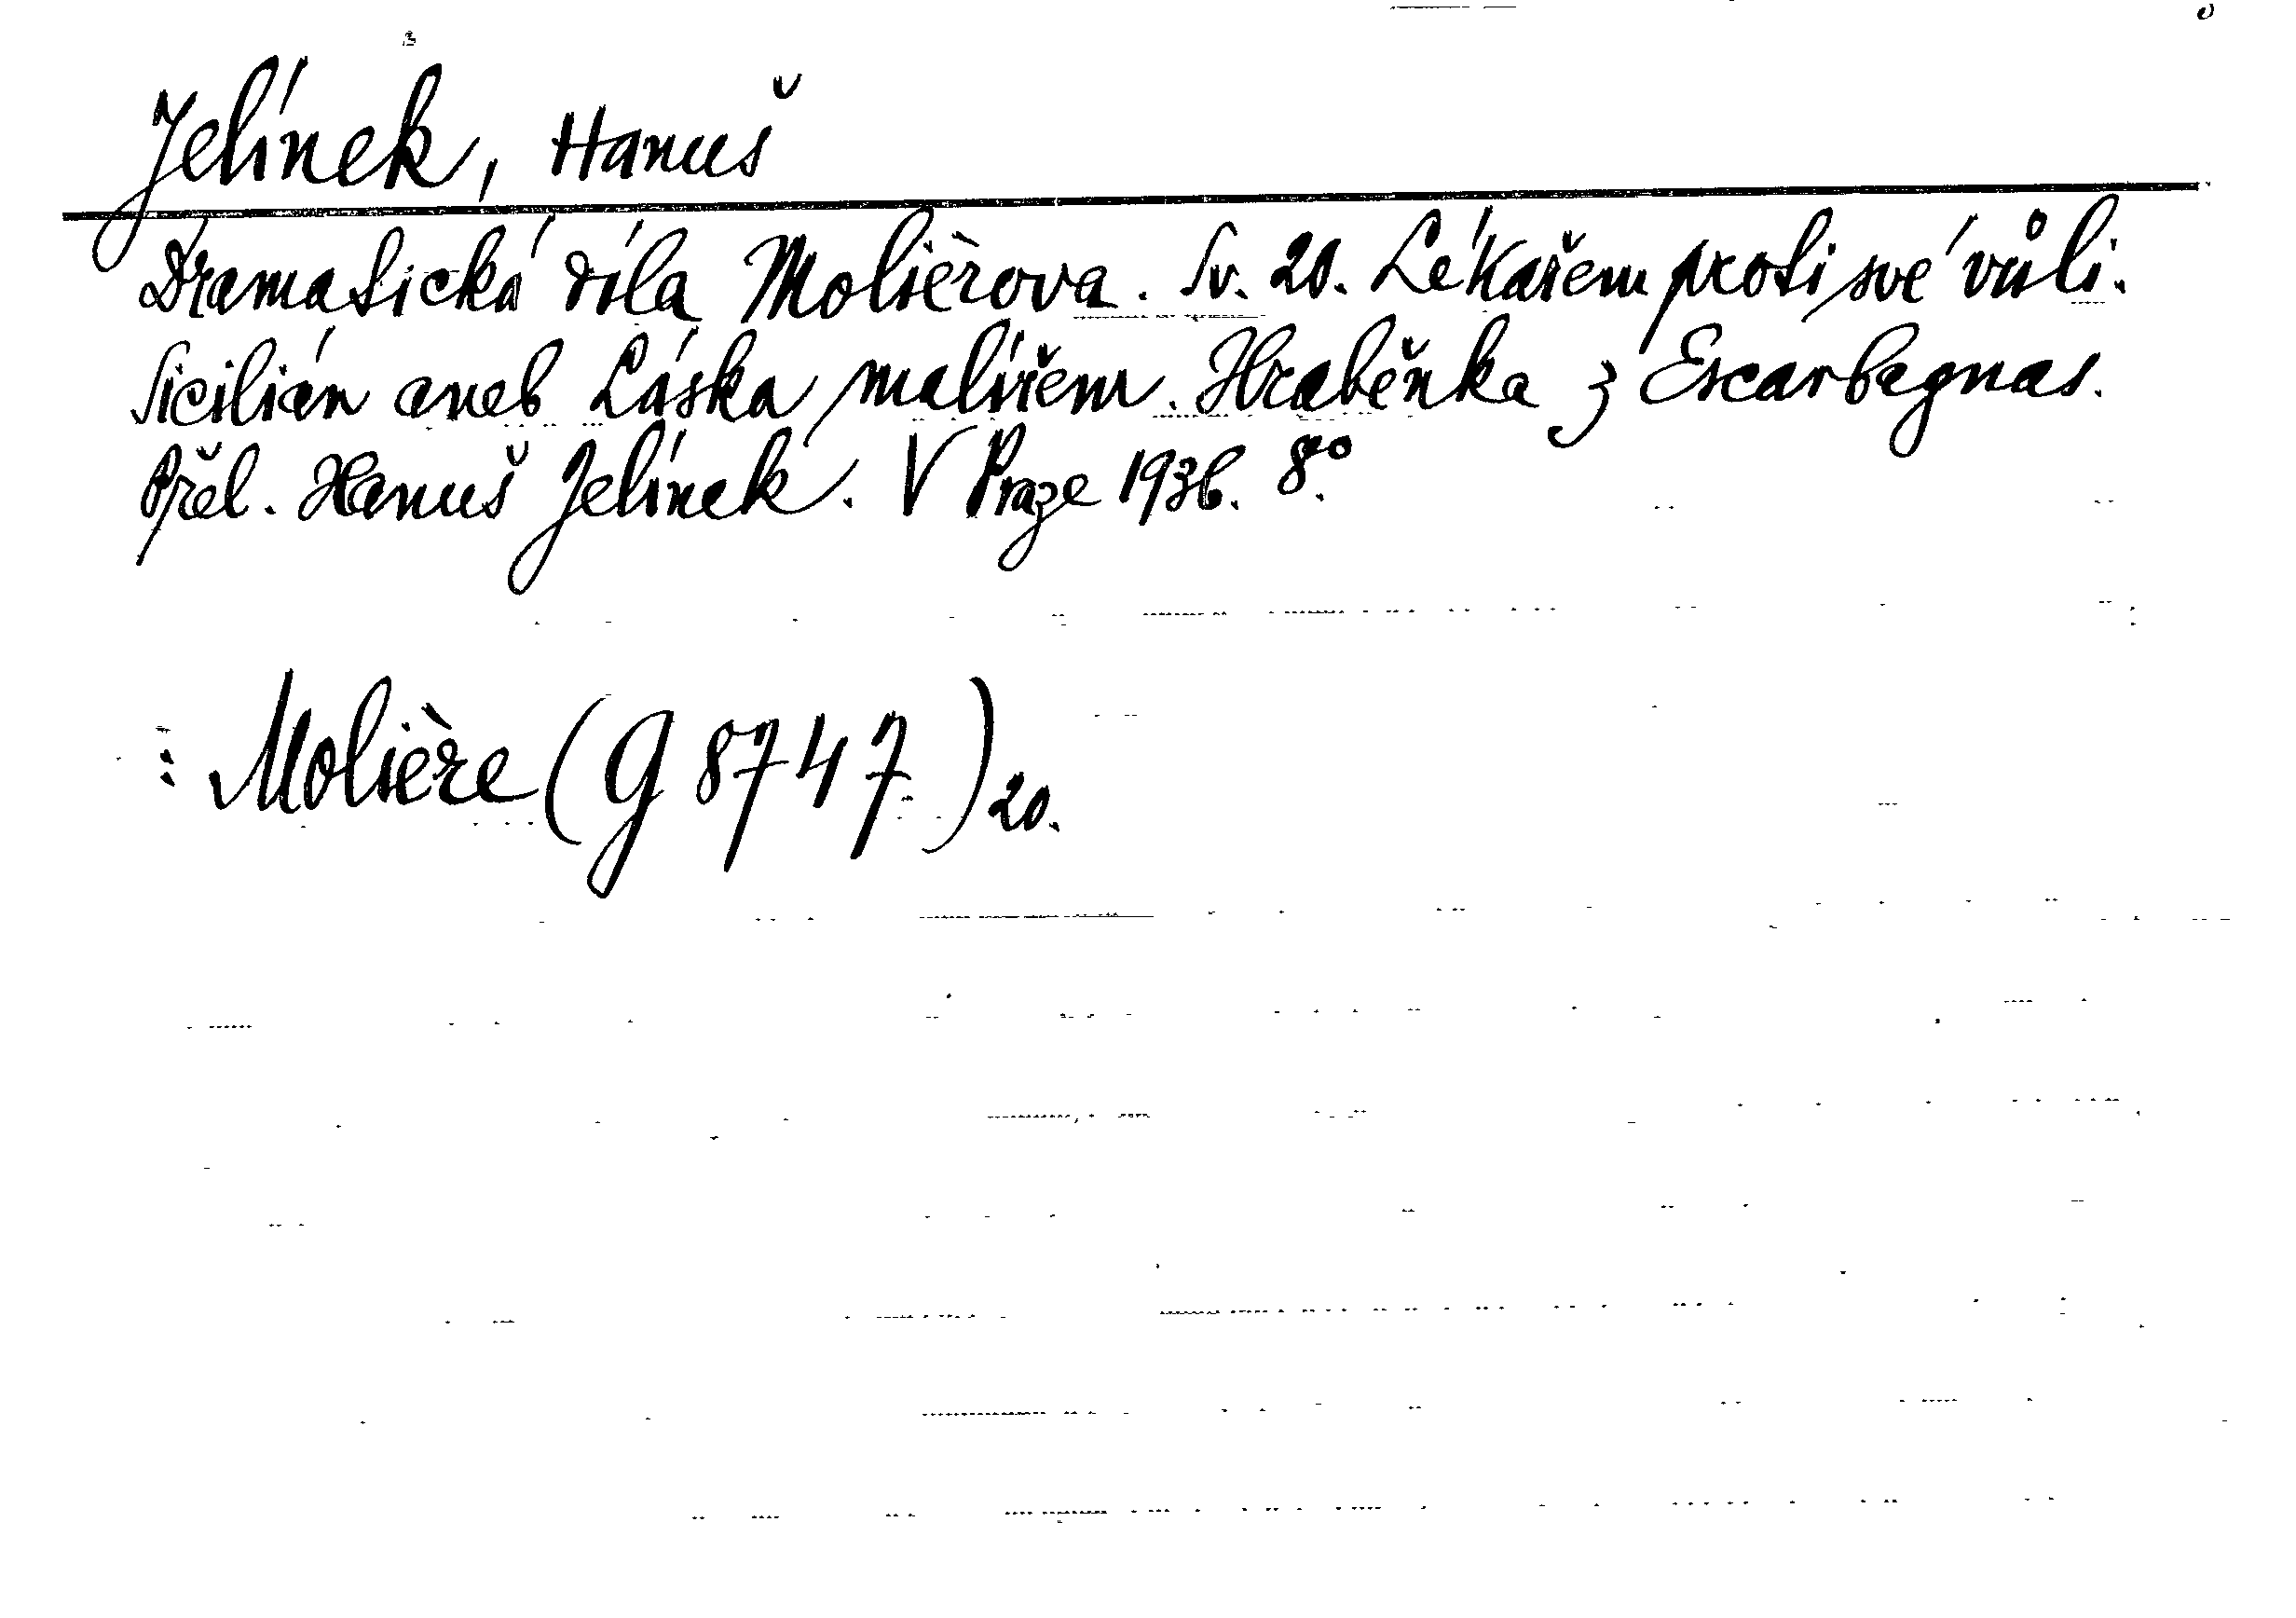 Jelínek, Hanuš
Dramatická díla Molièrova. Sv. 20. Lékařem proti své vůli.
Sicilián aneb Láska malířem. Hraběnka z Escarbagnas.
Přel. Hanuš Jelínek. V Praze 1936. 8°.
: Molière (G 8747)20.